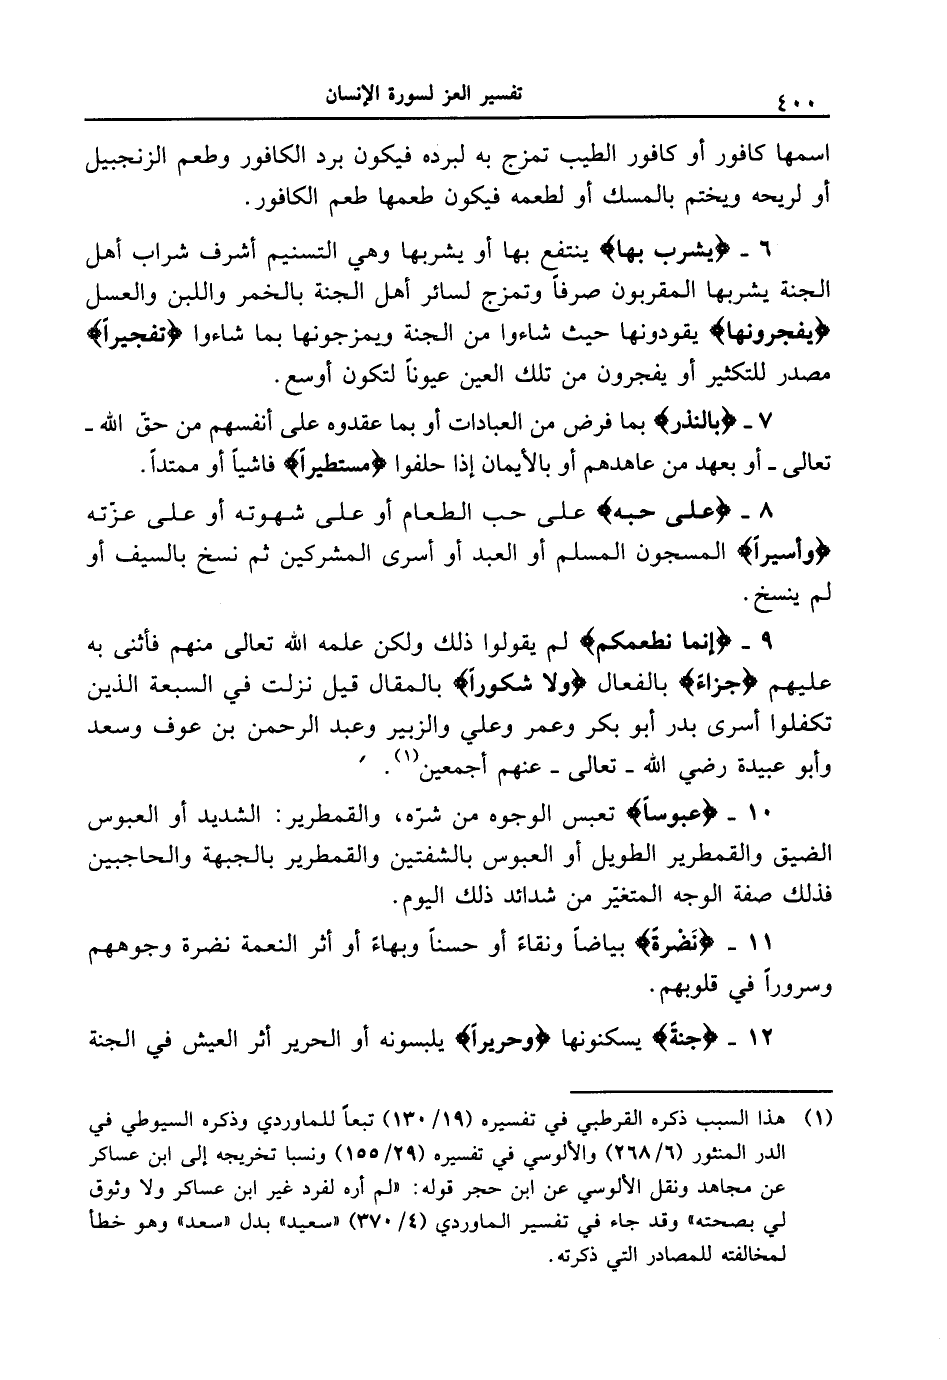 ٤٠٠ تفسير العز لسورة الإنسان
اسمها كافور أو كافور الطيب تمزج به لبرده فيكون برد الكافور وطعم الزنجبيل
أو لريحه ويختم بالمسك أو لطعمه فيكون طعمها طعم الكافور.
٦ ـ ﴿يشرب بها﴾ ينتفع بها أو يشربها وهي التسنيم أشرف شراب أهل
الجنة يشربها المقربون صرفاً وتمزج لسائر أهل الجنة بالخمر واللبن والعسل
﴿يفجرونها﴾ يقودونها حيث شاءوا من الجنة ويمزجونها بما شاءوا ﴿تفجيراً﴾
مصدر للتكثير أو يفجرون من تلك العين عيوناً لتكون أوسع.
٧ ـ ﴿بالنذر﴾ بما فرض من العبادات أو بما عقدوه على أنفسهم من حقّ الله ـ
تعالى ـ أو بعهد من عاهدهم أو بالأيمان إذا حلفوا ﴿مستطيراً﴾ فاشياً أو ممتداً.
٨ ـ ﴿على حبه﴾ على حب الطعام أو على شهوته أو على عزّته
﴿وأسيراً﴾ المسجون المسلم أو العبد أو أسرى المشركين ثم نسخ بالسيف أو
لم ينسخ.
٩ ـ ﴿إنما نطعمكم﴾ لم يقولوا ذلك ولكن علمه الله تعالى منهم فأثنى به
عليهم ﴿جزاءً﴾ بالفعال ﴿ولا شكوراً﴾ بالمقال قيل نزلت في السبعة الذين
تكفلوا أسرى بدر أبو بكر وعمر وعلي والزبير وعبد الرحمن بن عوف وسعد
وأبو عبيدة رضي الله ـ تعالى ـ عنهم أجمعين(١).
١٠ ـ ﴿عبوساً﴾ تعبس الوجوه من شرّه، والقمطرير: الشديد أو العبوس
الضيق والقمطرير الطويل أو العبوس بالشفتين والقمطرير بالجبهة والحاجبين
فذلك صفة الوجه المتغيّر من شدائد ذلك اليوم.
١١ ـ ﴿نَضْرةً﴾ بياضاً ونقاءً أو حسناً وبهاءً أو أثر النعمة نضرة وجوههم
وسروراً في قلوبهم.
١٢ ـ ﴿جنةً﴾ يسكنونها ﴿وحريراً﴾ يلبسونه أو الحرير أثر العيش في الجنة
(١) هذا السبب ذكره القرطبي في تفسيره (١٣٠/١٩) تبعاً للماوردي وذكره السيوطي في
الدر المنثور (٢٦٨/٦) والألوسي في تفسيره (١٥٥/٢٩) ونسبا تخريجه إلى ابن عساكر
عن مجاهد ونقل الألوسي عن ابن حجر قوله: «لم أره لفرد غير ابن عساكر ولا وثوق
لي بصحته» وقد جاء في تفسير الماوردي (٣٧٠/٤) «سعيد» بدل «سعد» وهو خطأ
لمخالفته للمصادر التي ذكرته.